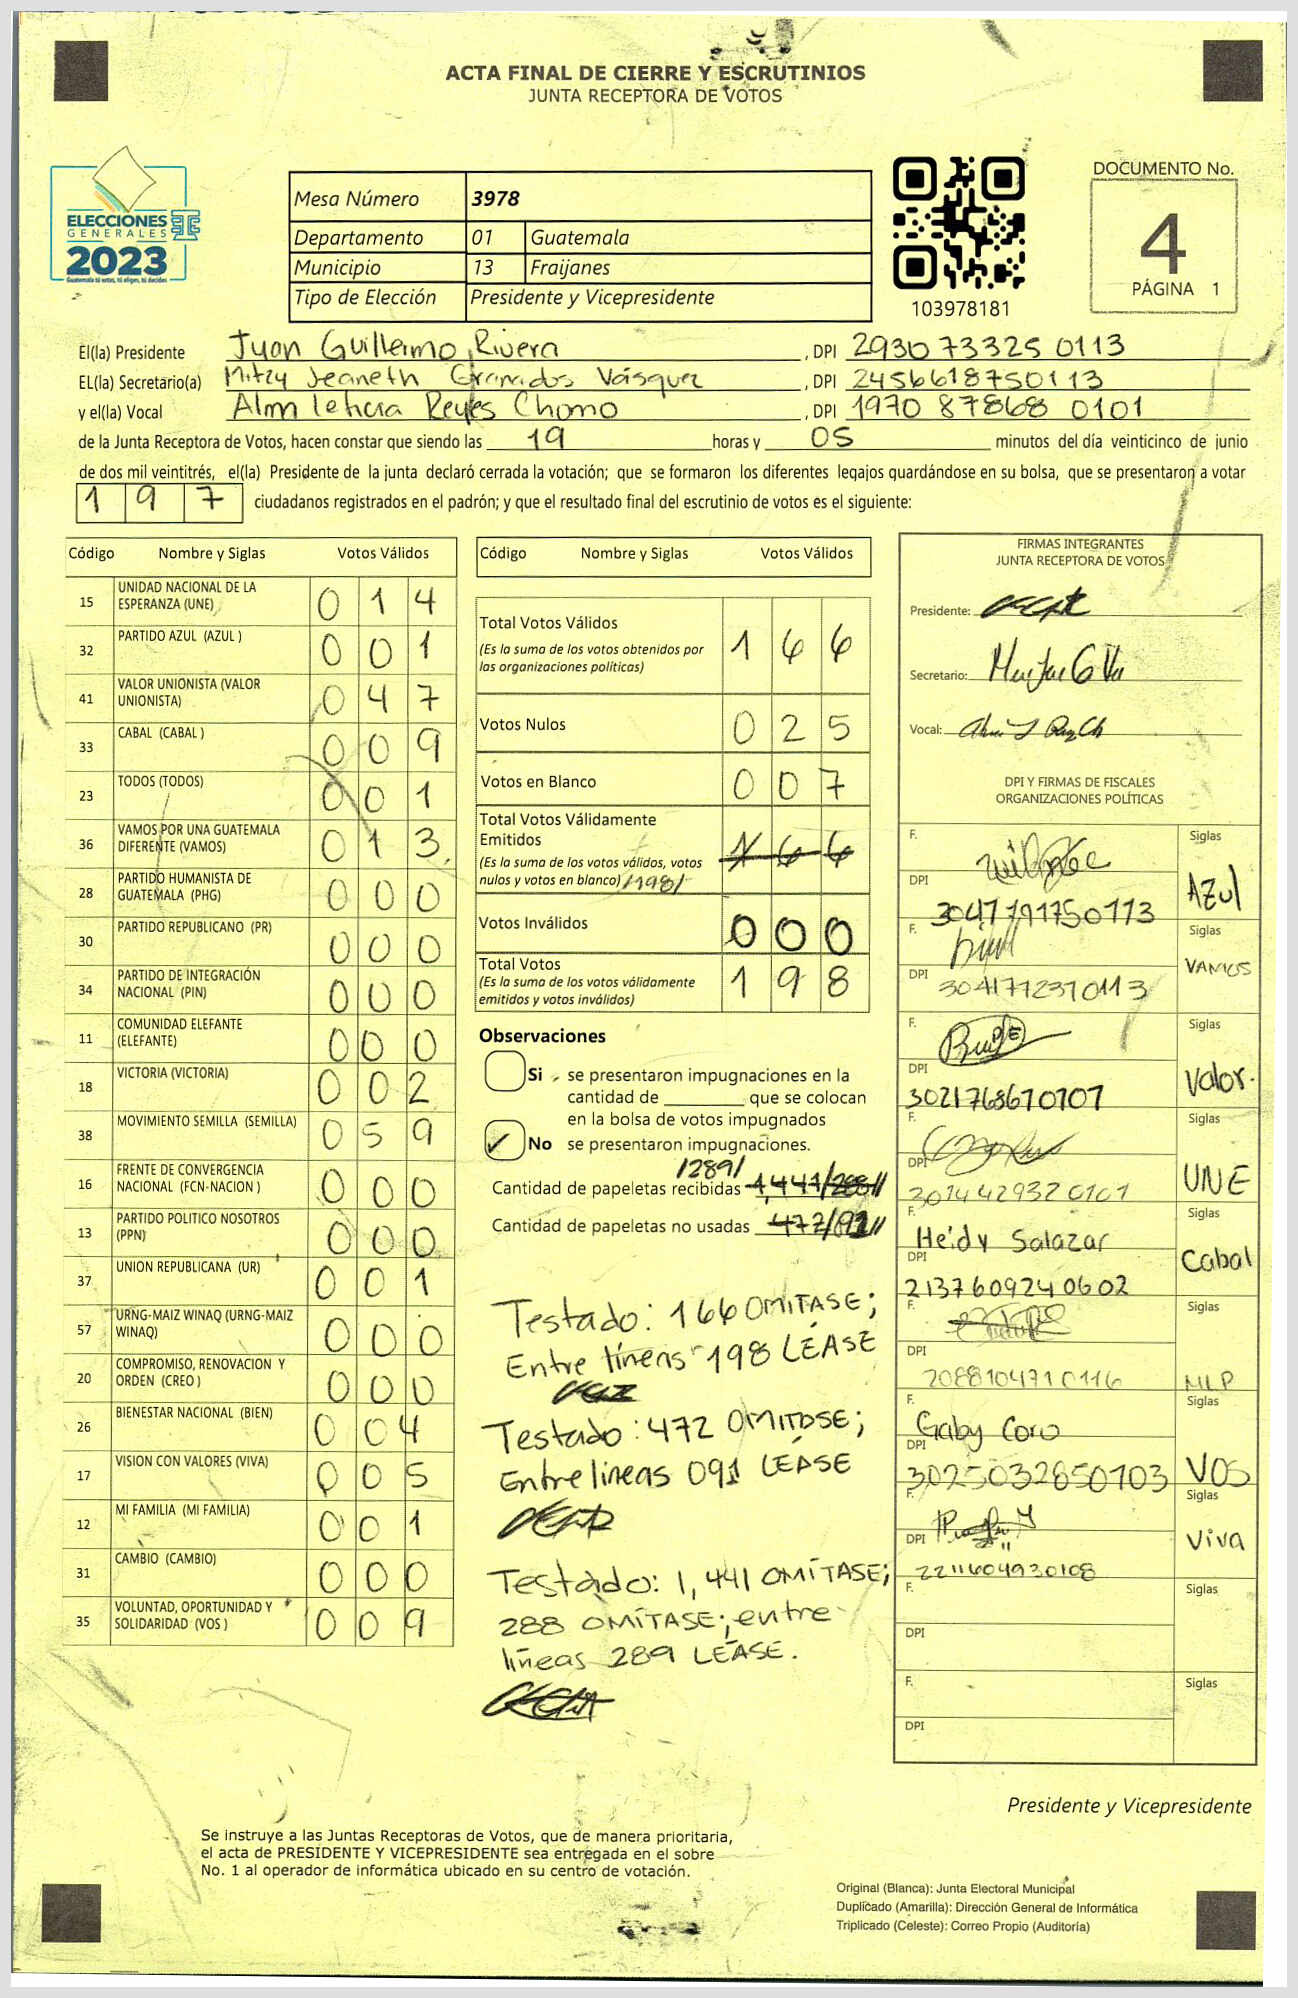 ACTA FINAL DE CIERRE Y ESCRUTINIOS
JUNTA RECEPTORA DE VOTOS
ELECCIONES
GENERALES
2023
Guatemala tú votas, tú eliges, tú decides
Mesa Número 3978
Departamento 01 Guatemala
Municipio 13 Fraijanes
Tipo de Elección Presidente y Vicepresidente
103978181
DOCUMENTO No.
4
PÁGINA 1
El(la) Presidente Juan Guillermo Rivera , DPI 2930 73325 0113
EL(la) Secretario(a) Mitzy Jeaneth Granados Vásquez , DPI 2456618750113
y el(la) Vocal Alm leticia Reyes Chomo , DPI 1970 87868 0101
de la Junta Receptora de Votos, hacen constar que siendo las 19 horas y 05 minutos del día veinticinco de junio
de dos mil veintitrés, el(la) Presidente de la junta declaró cerrada la votación; que se formaron los diferentes legajos guardándose en su bolsa, que se presentaron a votar
197 ciudadanos registrados en el padrón; y que el resultado final del escrutinio de votos es el siguiente:
Código Nombre y Siglas Votos Válidos
15 UNIDAD NACIONAL DE LA ESPERANZA (UNE) 014
32 PARTIDO AZUL (AZUL ) 001
41 VALOR UNIONISTA (VALOR UNIONISTA) 047
33 CABAL (CABAL ) 009
23 TODOS (TODOS) 001
36 VAMOS POR UNA GUATEMALA DIFERENTE (VAMOS) 013
28 PARTIDO HUMANISTA DE GUATEMALA (PHG) 000
30 PARTIDO REPUBLICANO (PR) 000
34 PARTIDO DE INTEGRACIÓN NACIONAL (PIN) 000
11 COMUNIDAD ELEFANTE (ELEFANTE) 000
18 VICTORIA (VICTORIA) 002
38 MOVIMIENTO SEMILLA (SEMILLA) 059
16 FRENTE DE CONVERGENCIA NACIONAL (FCN-NACION ) 000
13 PARTIDO POLITICO NOSOTROS (PPN) 000
37 UNION REPUBLICANA (UR) 001
57 URNG-MAIZ WINAQ (URNG-MAIZ WINAQ) 000
20 COMPROMISO, RENOVACION Y ORDEN (CREO ) 000
26 BIENESTAR NACIONAL (BIEN) 004
17 VISION CON VALORES (VIVA) 005
12 MI FAMILIA (MI FAMILIA) 001
31 CAMBIO (CAMBIO) 000
35 VOLUNTAD, OPORTUNIDAD Y SOLIDARIDAD (VOS ) 009
Código Nombre y Siglas Votos Válidos
Total Votos Válidos 166
(Es la suma de los votos obtenidos por
las organizaciones políticas)
Votos Nulos 025
Votos en Blanco 007
Total Votos Válidamente
Emitidos 166
(Es la suma de los votos válidos, votos
nulos y votos en blanco) /198/
Votos Inválidos 000
Total Votos 198
(Es la suma de los votos válidamente
emitidos y votos inválidos)
Observaciones
Si se presentaron impugnaciones en la
cantidad de ________ que se colocan
en la bolsa de votos impugnados
✓ No se presentaron impugnaciones.
/289/
Cantidad de papeletas recibidas 1,441/288//
Cantidad de papeletas no usadas 472/091//
Testado: 166 OMITASE;
Entre líneas 198 LÉASE
Testado: 472 OMITOSE;
Entrelineas 091 LÉASE
Testado: 1,441 OMÍTASE;
288 OMÍTASE; entre
líneas 289 LÉASE.
FIRMAS INTEGRANTES
JUNTA RECEPTORA DE VOTOS
Presidente:
Secretario:
Vocal:
DPI Y FIRMAS DE FISCALES
ORGANIZACIONES POLÍTICAS
F. Siglas
DPI 3047791750113 AZul
F. Siglas
DPI 30417712370113 VAMOS
F. Siglas
DPI 3021768670101 Valor.
F. Siglas
DPI 301442932 0101 UNE
F. Heidy Salazar Siglas
DPI 2137609240602 Cabal
F. Siglas
DPI 2088104710116 MLP
F. Gaby Coro Siglas
DPI 3025032850103 VOS
F. Siglas
DPI 2211604930108 Viva
F. Siglas
DPI
F. Siglas
DPI
Presidente y Vicepresidente
Se instruye a las Juntas Receptoras de Votos, que de manera prioritaria,
el acta de PRESIDENTE Y VICEPRESIDENTE sea entregada en el sobre
No. 1 al operador de informática ubicado en su centro de votación.
Original (Blanca): Junta Electoral Municipal
Duplicado (Amarilla): Dirección General de Informática
Triplicado (Celeste): Correo Propio (Auditoría)